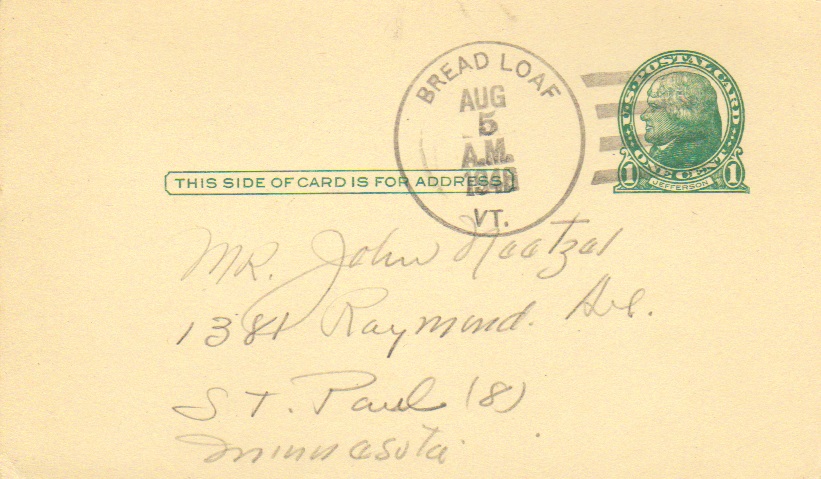 BREAD LOAF
AUG
5
A.M.
VT.
U.S. POSTAL CARD
ONE CENT
1 JEFFERSON 1
THIS SIDE OF CARD IS FOR ADDRESS
Mr. John
1381 Raymond. Ave.
St. Paul (8)
Minnesota